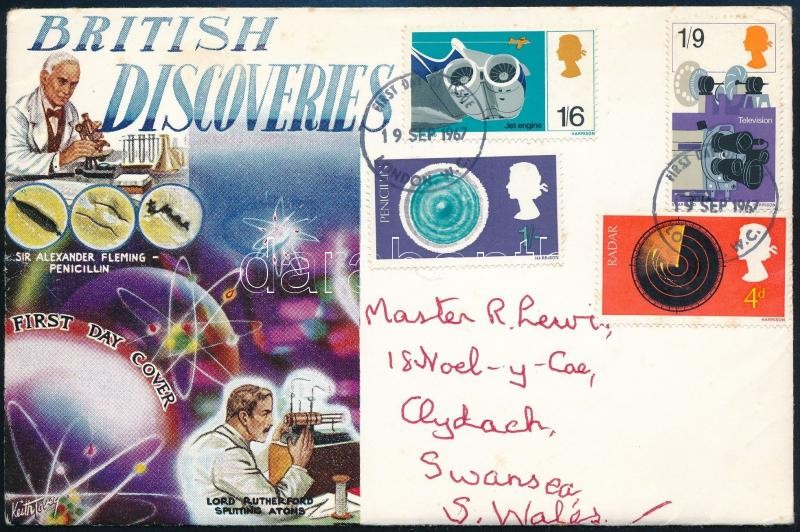 BRITISH
DISCOVERIES
SIR ALEXANDER FLEMING -
PENICILLIN
FIRST DAY COVER
LORD RUTHERFORD
SPLITTING ATOMS
1/6
Jet engine
HARRISON
1/9
Television
HARRISON
PENICILLIN
1/-
HARRISON
RADAR
4d
HARRISON
FIRST DAY OF ISSUE
19 SEP 1967
LONDON W.C.
FIRST DAY
19 SEP 1967
W.C.
Master R. Lewis,
18 Noel-y-Coe,
Clydach,
Swansea,
S. Wales.